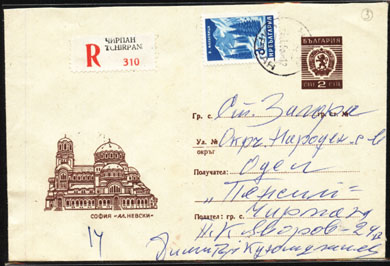 ЧИРПАН
TCHIRPAN
R 310
БЪЛГАРИЯ
2
Гр. с. Ст. Загора
Ул. № Окр. Народен с-т
окръг
Получател: Отдел
„Пенсии"
Подател: гр. с. Чирпан
П. К. Яворов - 24
Димитър
СОФИЯ "АЛ. НЕВСКИ"
14